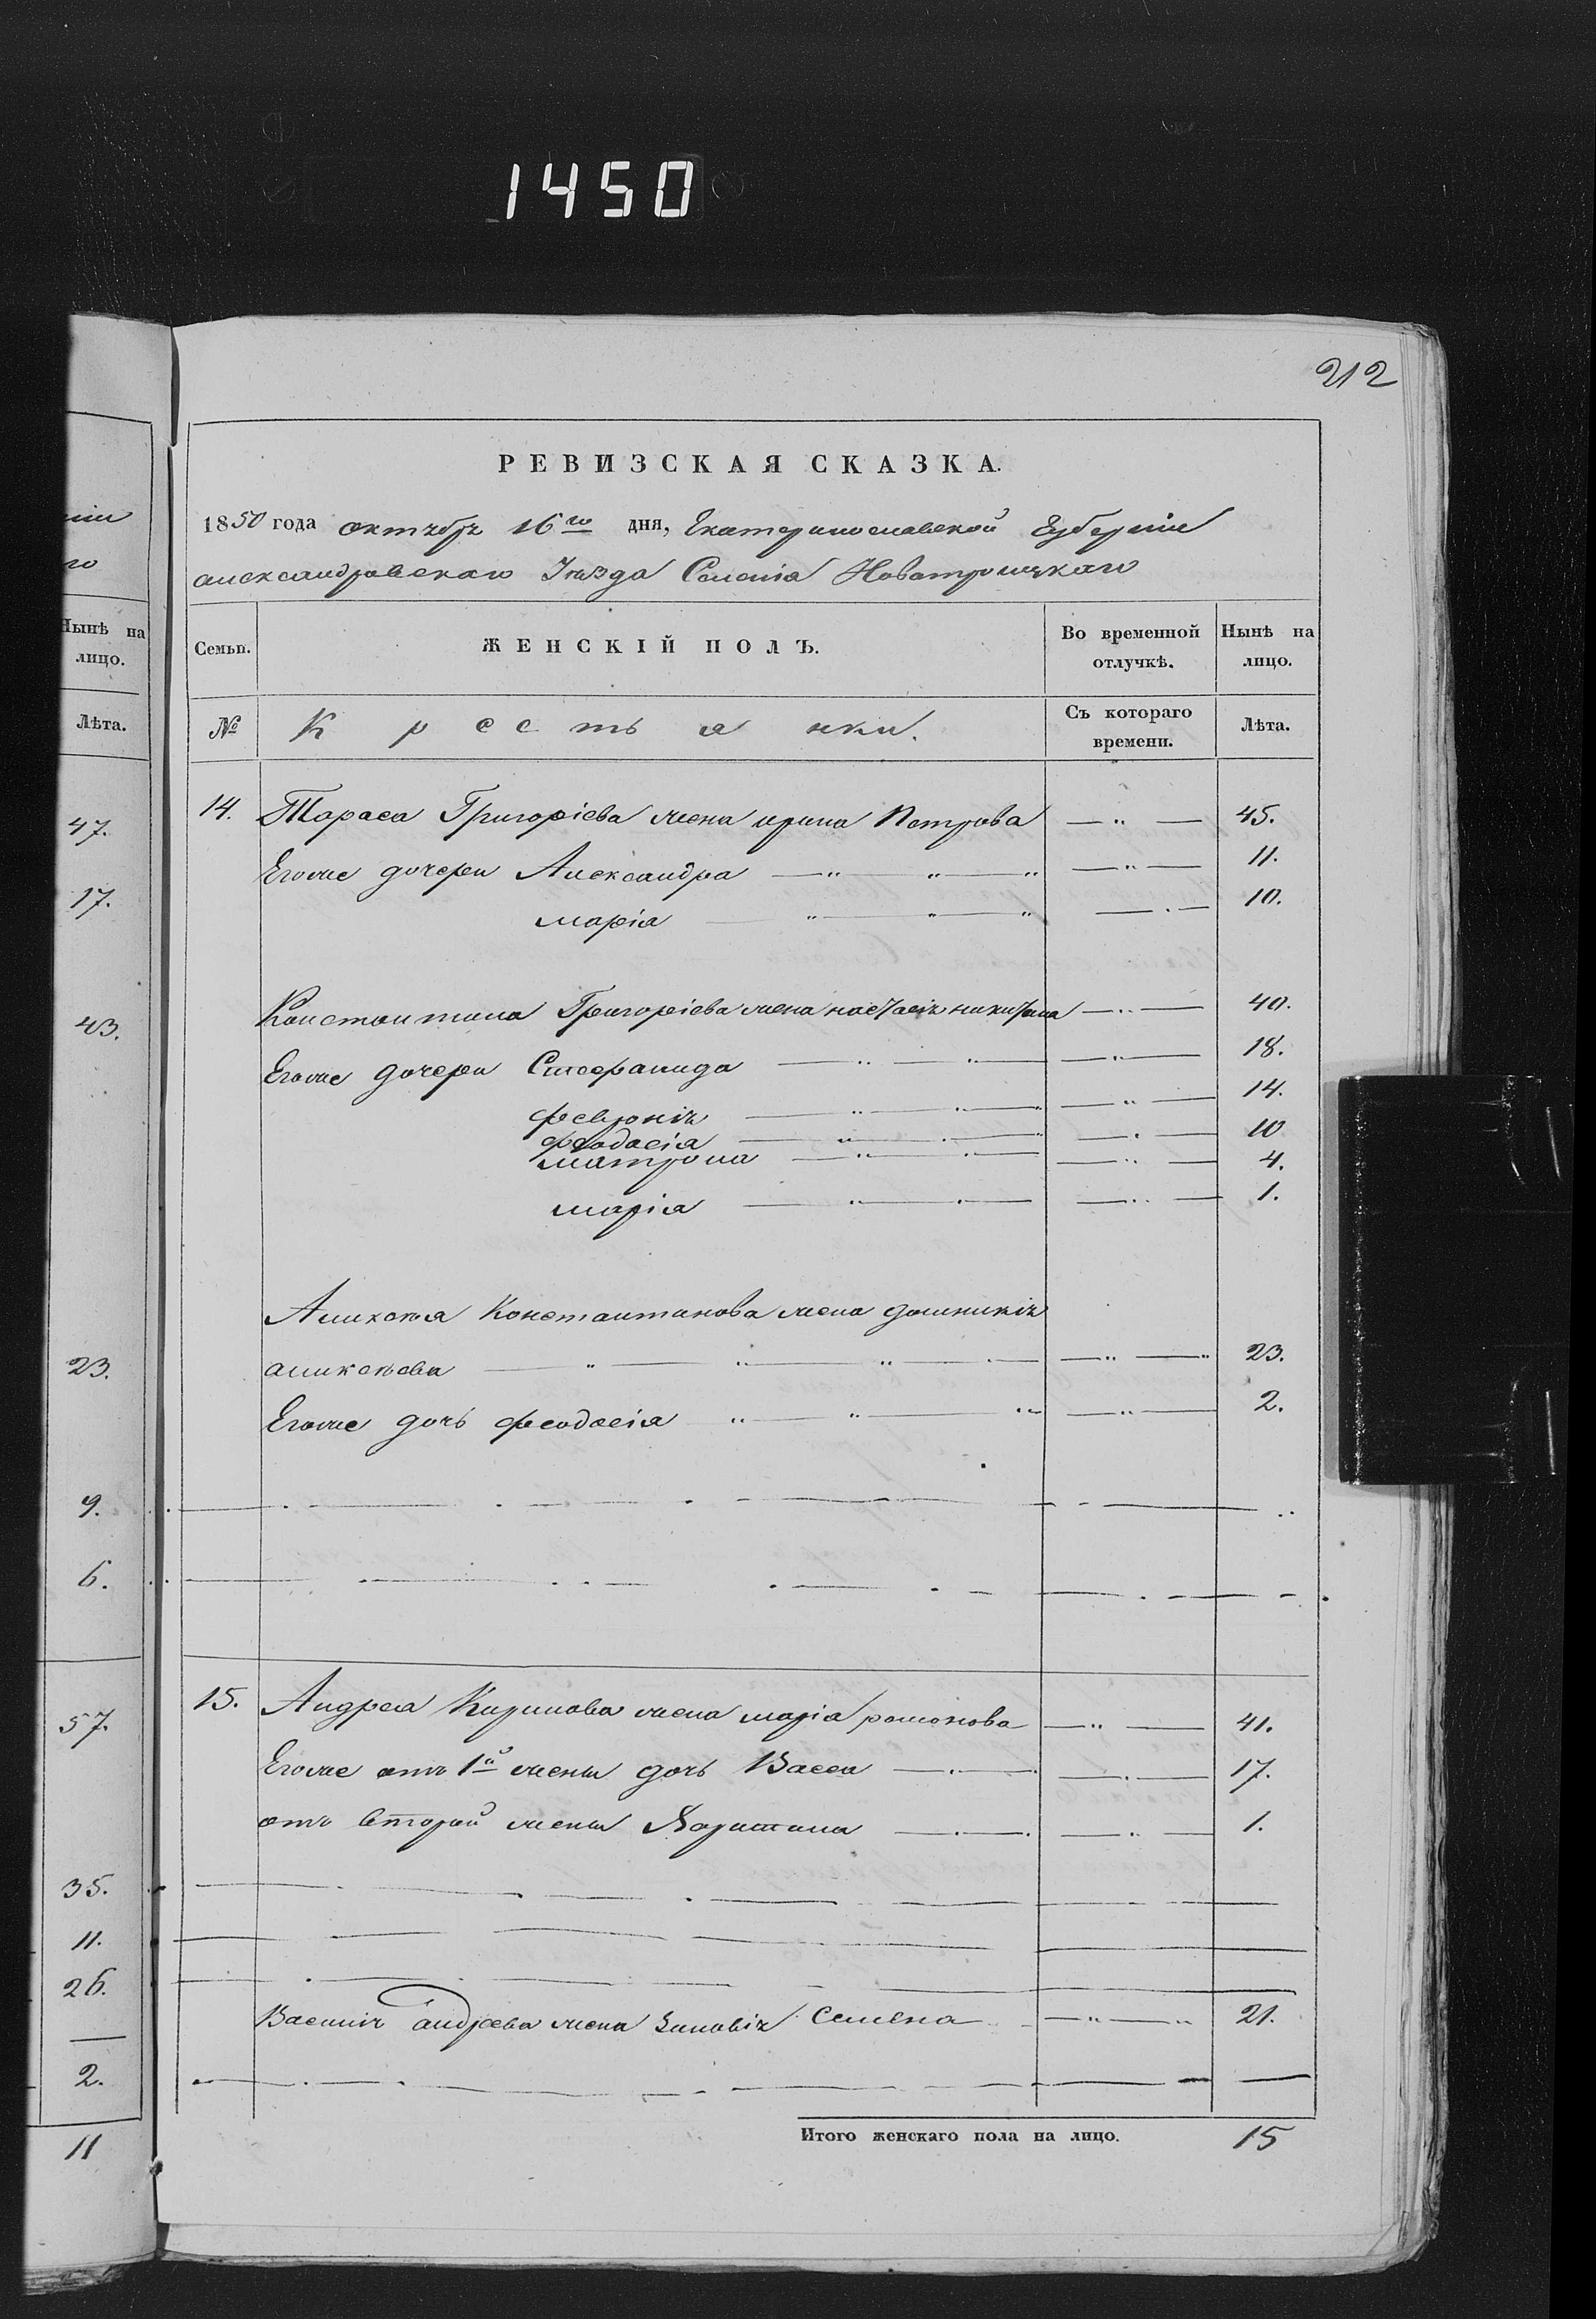 1450
212
РЕВИЗСКАЯ СКАЗКА.
1850 года октября 16го дня, Екатеринославской Губерніи
александровскаго Уѣзда Селенія Новотроицкаго
Семьи. ЖЕНСКІЙ ПОЛЪ. Во временной отлучкѣ. Нынѣ на лицо.
№ Крестьянки. Съ котораго времени. Лѣта.
14. Тараса Григоріева жена ирина Петрова — " — 45.
Егоже дочери Александра — " " " — " — 11.
марія — " — " — " — . — 10.
Константина Григоріева жена настасія никитина — " — 40.
Егоже дочери Степанида — " — " — " — 18.
февронія — " — " — " — 14.
феодосія — " — . — " — . — 10
матрона — " — . — " — 4.
марія — " — . — " — 1.
Аликсѣя Константинова жена домникія
аликсѣева — " — " — " — . — " — " 23.
Егоже дочь феодосія " — " — " — " — 2.
15. Андрея Кирилова жена марія романова — " — 41.
Егоже отъ 1й жены дочь Васса — . — . — . — 17.
отъ второй жены Харитина — . — . — " — 1.
Василія андреева жена Зиновія Семена — " — " 21.
Итого женскаго пола на лицо. 15
ніи
го
Нынѣ на
лицо.
Лѣта.
47.
17.
43.
23.
9.
6.
57.
35.
11.
26.
2.
11